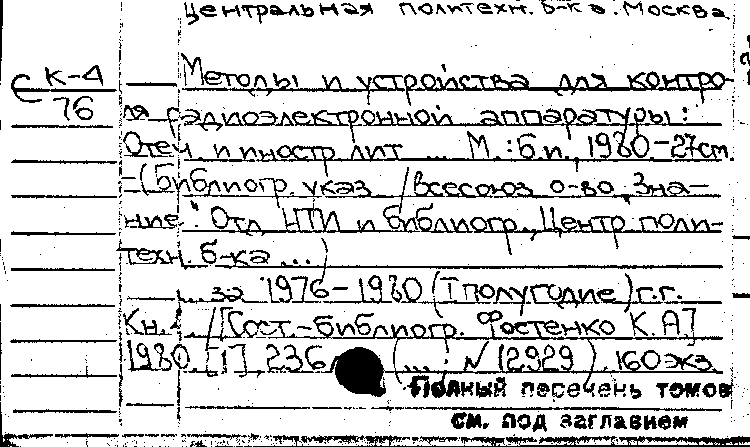 Центральная политехн. б-ка. Москва
С К-4
76
Методы и устройства для контро-
ля радиоэлектронной аппаратуры:
Отеч. и иностр. лит ... М.: Б.и., 1980-27см.
-(Библиогр. указ /Всесоюз о-во "Зна-
ние". Отд НТИ и библиогр., Центр поли-
техн. б-ка ...)
... за 1976-1980 (I полугодие) г.г.
Кн. /[Сост.-библиогр. Фостенко К.А]
1980. [1], 236 (...; N 12929). 160экз.
Полный перечень томов
см. под заглавием